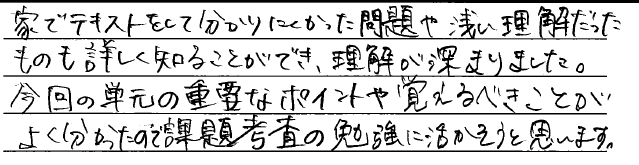 家でテキストをして分かりにくかった問題や浅い理解だった
ものも詳しく知ることができ、理解が深まりました。
今回の単元の重要なポイントや覚えるべきことが
よく分かったので課題考査の勉強に活かそうと思います。